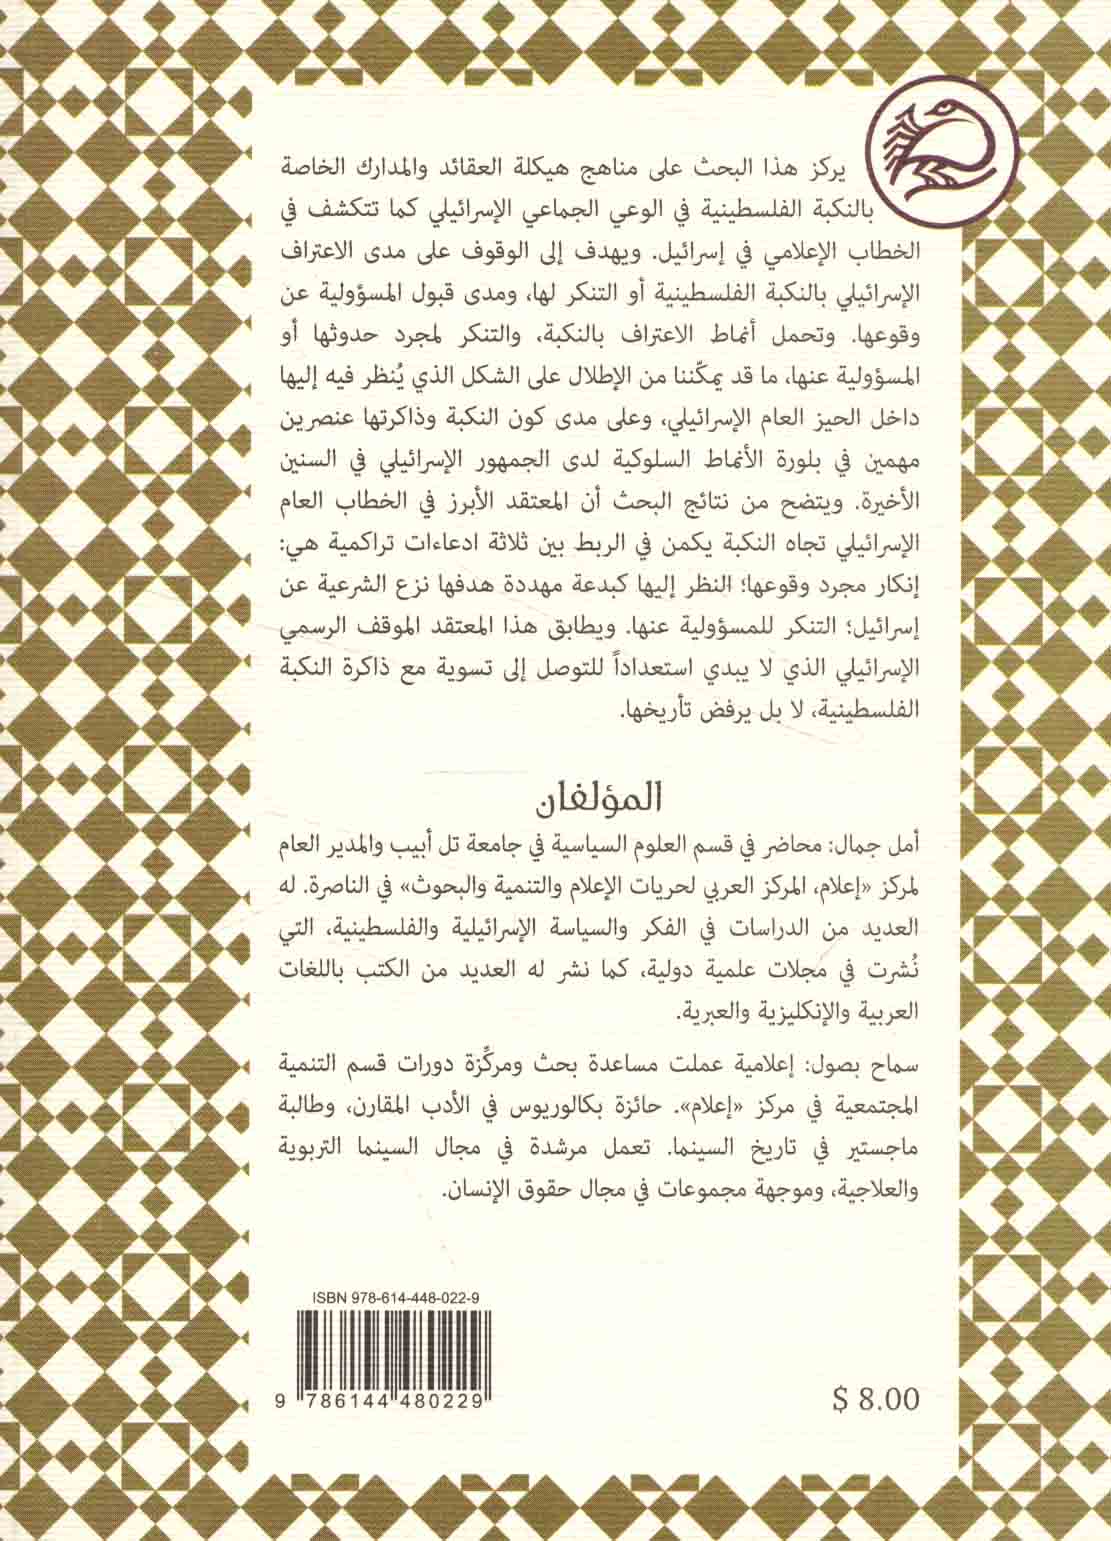 يركز هذا البحث على مناهج هيكلة العقائد والمدارك الخاصة
بالنكبة الفلسطينية في الوعي الجماعي الإسرائيلي كما تتكشف في
الخطاب الإعلامي في إسرائيل. ويهدف إلى الوقوف على مدى الاعتراف
الإسرائيلي بالنكبة الفلسطينية أو التنكر لها، ومدى قبول المسؤولية عن
وقوعها. وتحمل أنماط الاعتراف بالنكبة، والتنكر لمجرد حدوثها أو
المسؤولية عنها، ما قد يمكّننا من الإطلال على الشكل الذي يُنظر فيه إليها
داخل الحيز العام الإسرائيلي، وعلى مدى كون النكبة وذاكرتها عنصرين
مهمين في بلورة الأنماط السلوكية لدى الجمهور الإسرائيلي في السنين
الأخيرة. ويتضح من نتائج البحث أن المعتقد الأبرز في الخطاب العام
الإسرائيلي تجاه النكبة يكمن في الربط بين ثلاثة ادعاءات تراكمية هي:
إنكار مجرد وقوعها؛ النظر إليها كبدعة مهددة هدفها نزع الشرعية عن
إسرائيل؛ التنكر للمسؤولية عنها. ويطابق هذا المعتقد الموقف الرسمي
الإسرائيلي الذي لا يبدي استعداداً للتوصل إلى تسوية مع ذاكرة النكبة
الفلسطينية، لا بل يرفض تأريخها.
المؤلفان
أمل جمال: محاضر في قسم العلوم السياسية في جامعة تل أبيب والمدير العام
لمركز «إعلام، المركز العربي لحريات الإعلام والتنمية والبحوث» في الناصرة. له
العديد من الدراسات في الفكر والسياسة الإسرائيلية والفلسطينية، التي
نُشرت في مجلات علمية دولية، كما نشر له العديد من الكتب باللغات
العربية والإنكليزية والعبرية.
سماح بصول: إعلامية عملت مساعدة بحث ومركِّزة دورات قسم التنمية
المجتمعية في مركز «إعلام». حائزة بكالوريوس في الأدب المقارن، وطالبة
ماجستير في تاريخ السينما. تعمل مرشدة في مجال السينما التربوية
والعلاجية، وموجهة مجموعات في مجال حقوق الإنسان.
ISBN 978-614-448-022-9
9 786144 480229
$ 8.00